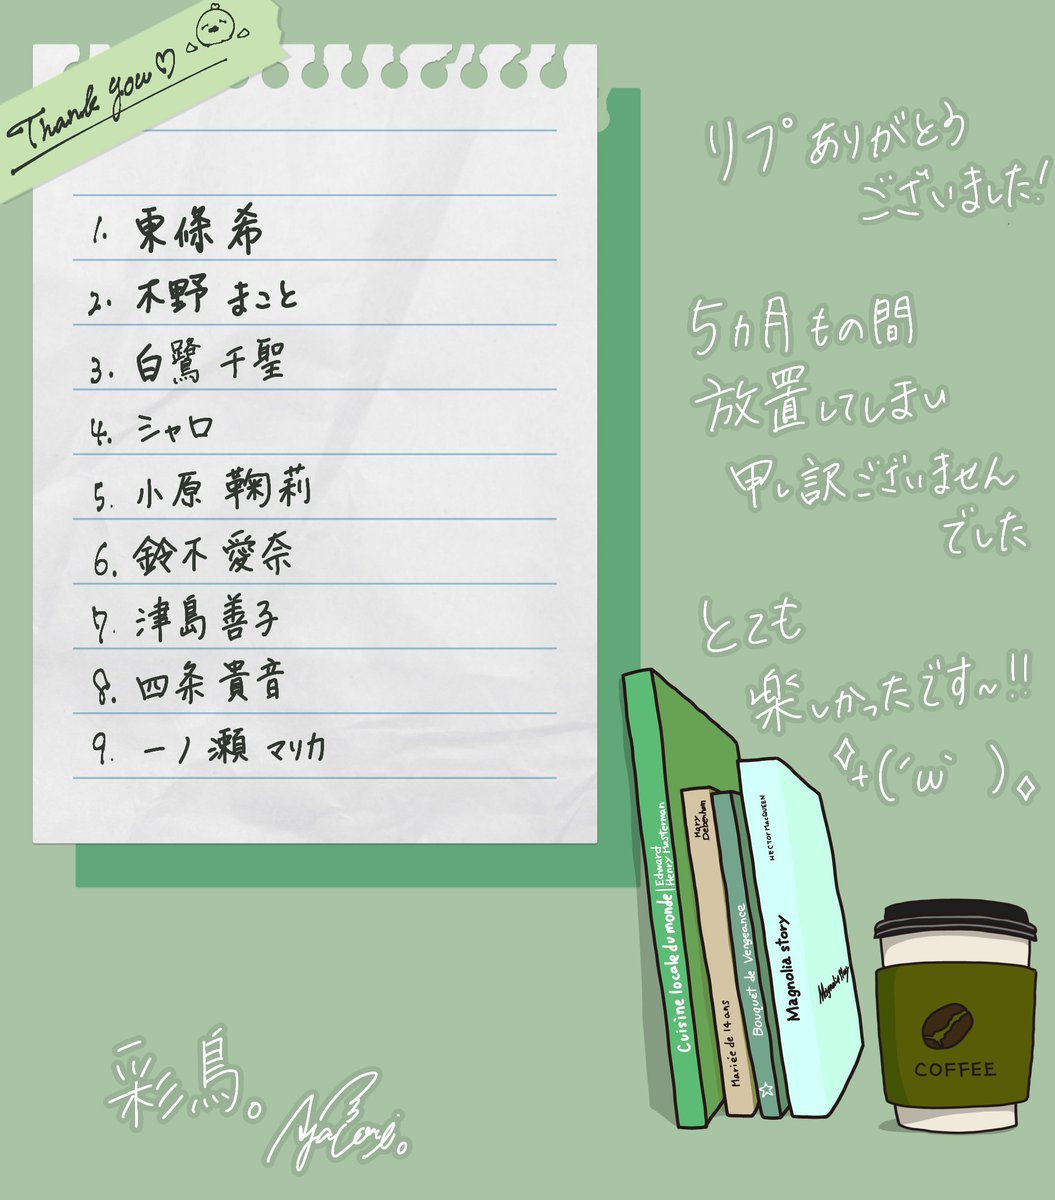 Thank you♡
1. 東條 希
2. 木野 まこと
3. 白鷺 千聖
4. シャロ
5. 小原 鞠莉
6. 鈴木 愛奈
7. 津島 善子
8. 四条 貴音
9. 一ノ瀬 マリカ
リプ ありがとう
ございました!
5カ月もの間
放置してしまい
申し訳ございません
でした
とても
楽しかったです~!!
(´ω` )
Cuisine locale du monde | Edward
Henry Masterman
Mary
Debenham
Mariée de 14 ans
Bouquet de Vengeance
HECTOR MACQUEEN
Magnolia story
COFFEE
彩鳥。